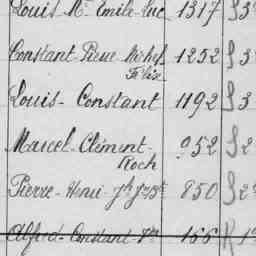 Louis Me Emile Luc 1317 3
Constant Pierre Michel 1252 3
Félix
Louis - Constant 1192 3
Marcel - Clément - 952 2
Roch
Pierre - Henri - Jh Jn Bte 850 2
Alfred - Constant 166 1